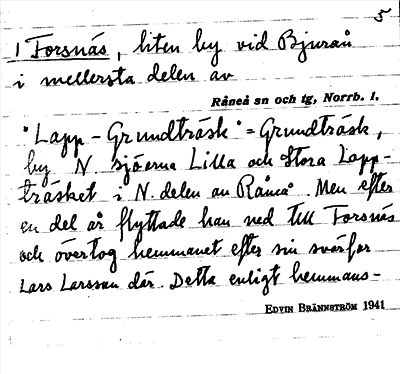 5
I Forsnäs, liten by vid Bjuraå
i mellersta delen av
Råneå sn och tg, Norrb. l.
"Lapp-Grundträsk" = Grundträsk,
by N sjöarna Lilla och Stora Lapp-
träsket i N. delen av Råneå. Men efter
en del år flyttade han ned till Forsnäs
och övertog hemmanet efter sin svärfar
Lars Larsson där. Detta enligt hemmans-
EDVIN BRÄNNSTRÖM 1941